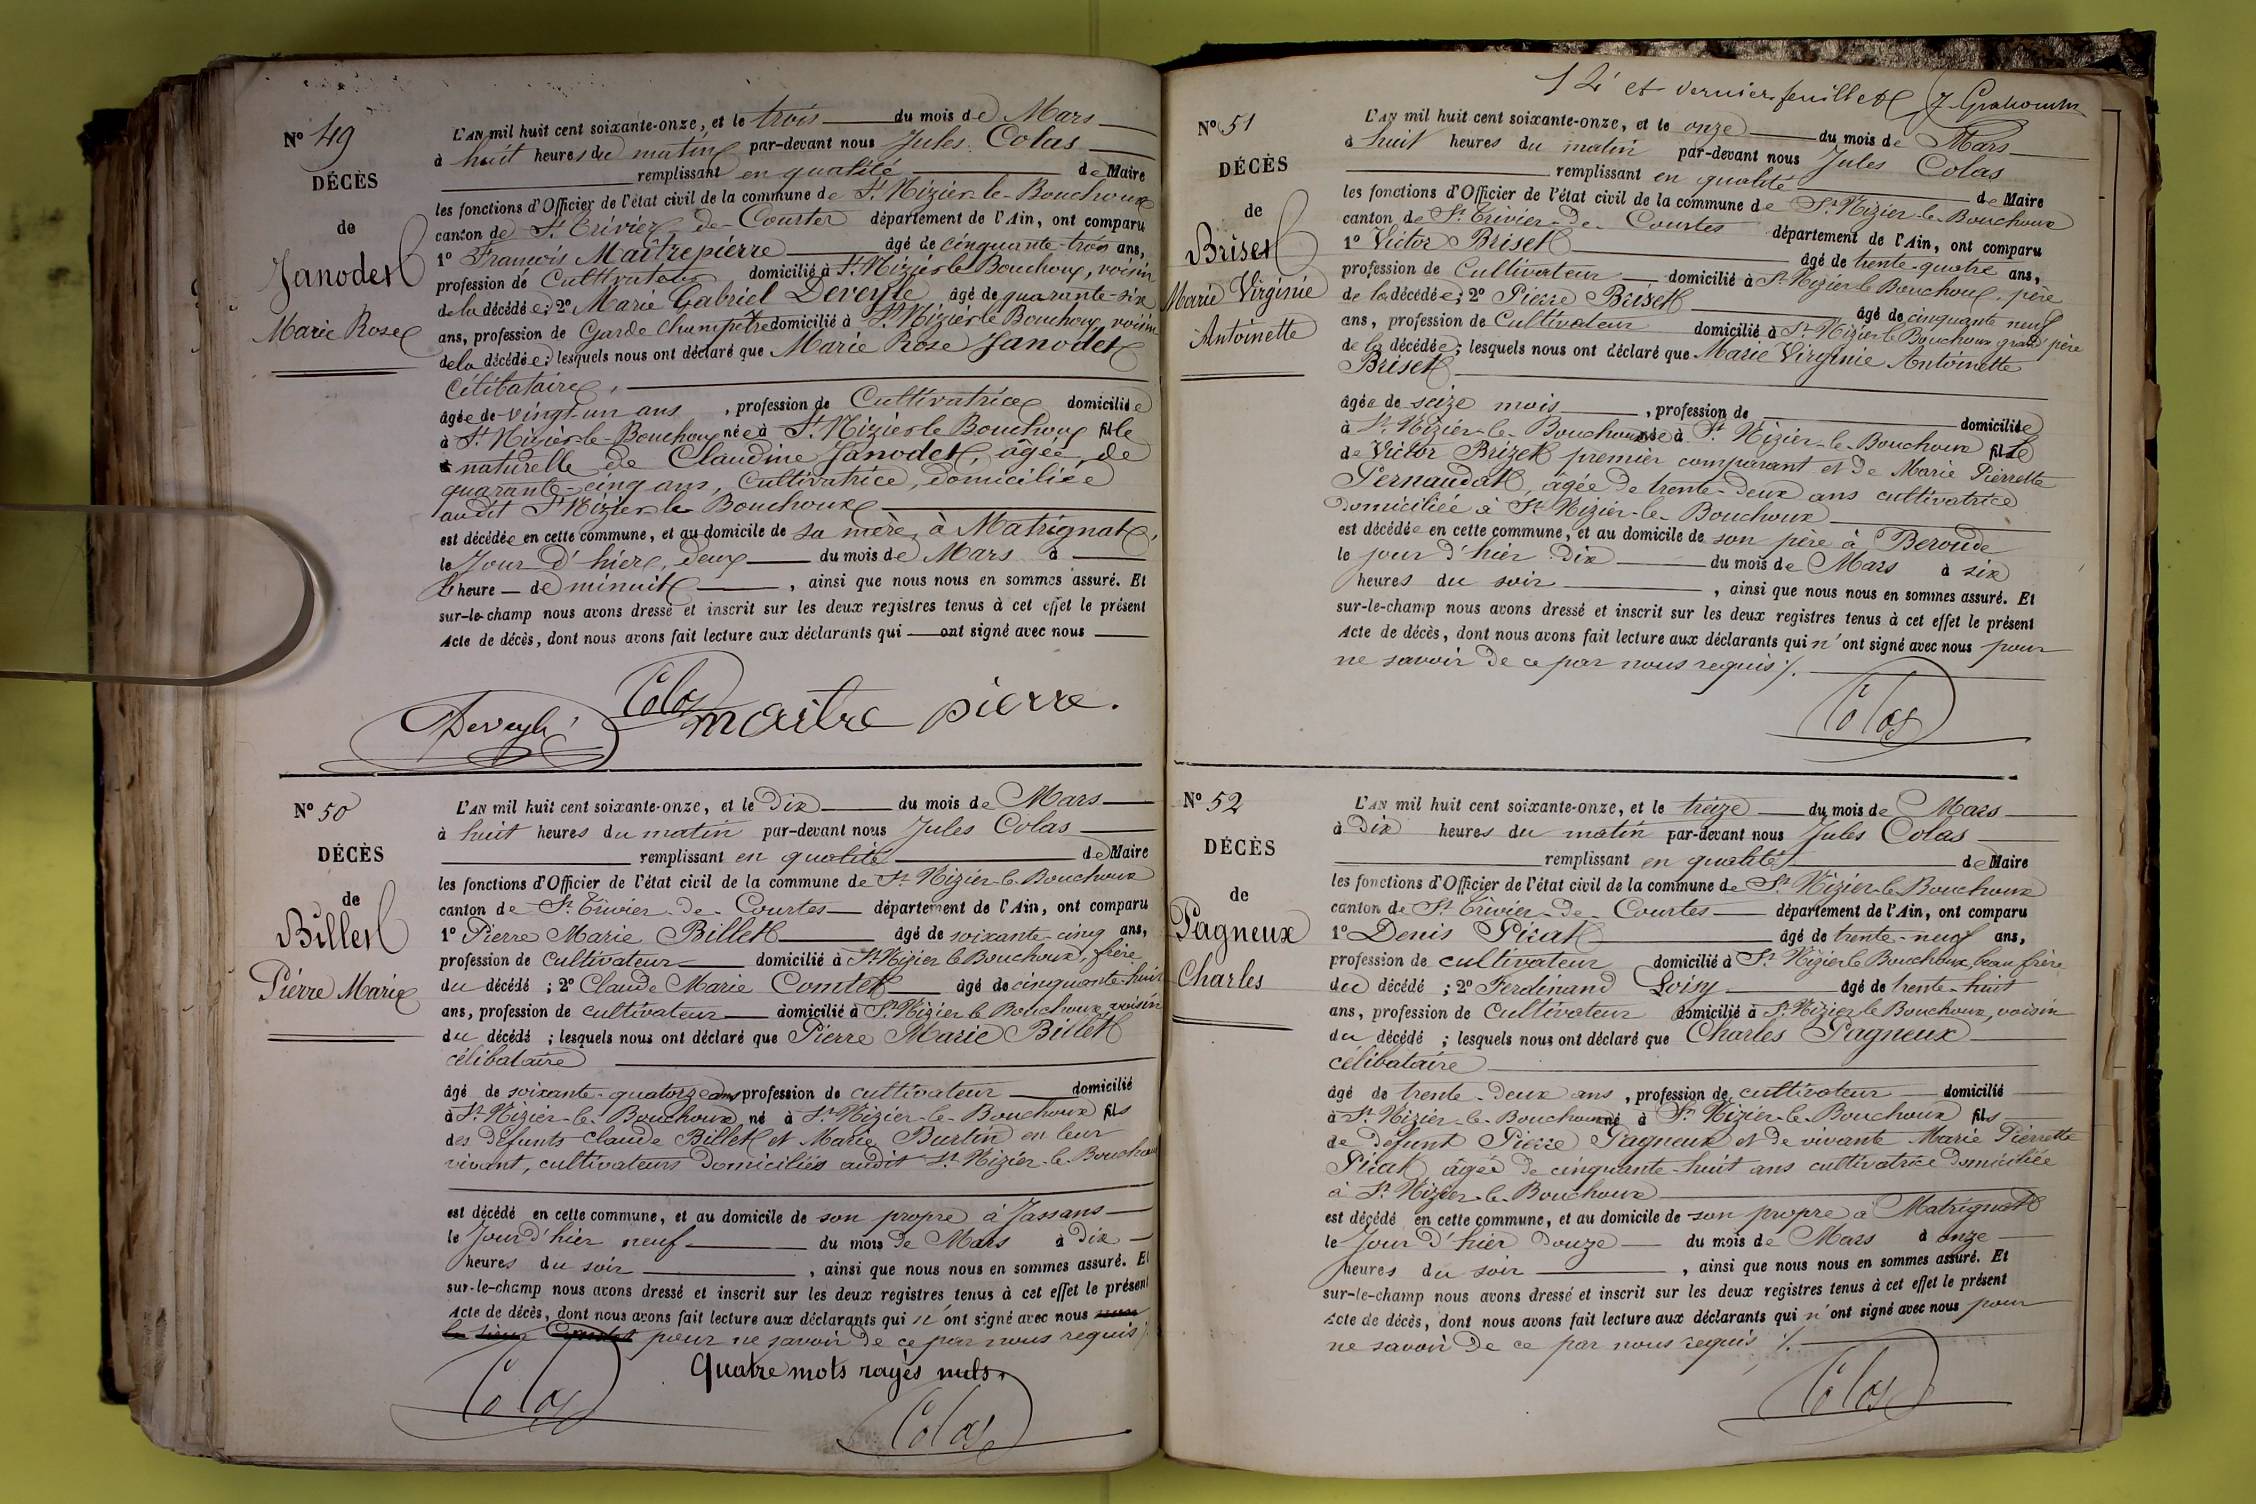 N° 49
DÉCÈS
de
Janodet
Marie Rose
L'AN mil huit cent soixante-onze, et le trois du mois de Mars
à huit heures du matin par-devant nous Jules Colas
remplissant en qualité de Maire
les fonctions d'Officier de l'état civil de la commune de St Nizier-le-Bouchoux
canton de St Trivier-de-Courtes département de l'Ain, ont comparu
1° François Maîtrepierre âgé de cinquante-trois ans,
profession de Cultivateur domicilié à St Nizier le Bouchoux, voisin
de la décédée; 2° Marie Gabriel Deveyle âgé de quarante-six
ans, profession de Garde champêtre domicilié à St Nizier le Bouchoux, voisin
de la décédée; lesquels nous ont déclaré que Marie Rose Janodet
Célibataire,
âgée de vingt-un ans, profession de Cultivatrice domiciliée
à St Nizier-le-Bouchoux née à St Nizier le Bouchoux fille
naturelle de Claudine Janodet, âgée de
quarante-cinq ans, Cultivatrice, domiciliée
audit St Nizier-le-Bouchoux
est décédée en cette commune, et au domicile de sa mère, à Matrignat,
le Jour d'hier, deux du mois de Mars à
l'heure de minuit, ainsi que nous nous en sommes assuré. Et
sur-le-champ nous avons dressé et inscrit sur les deux registres tenus à cet effet le présent
Acte de décès, dont nous avons fait lecture aux déclarants qui ont signé avec nous
Colas
Deveyle maitre pierre.
N° 50
DÉCÈS
de
Billet
Pierre Marie
L'AN mil huit cent soixante-onze, et le Dix du mois de Mars
à huit heures du matin par-devant nous Jules Colas
remplissant en qualité de Maire
les fonctions d'Officier de l'état civil de la commune de St Nizier-le-Bouchoux
canton de St Trivier-de-Courtes département de l'Ain, ont comparu
1° Pierre Marie Billet âgé de soixante-cinq ans,
profession de cultivateur domicilié à St Nizier le Bouchoux, frère
du décédé; 2° Claude Marie Comtet âgé de cinquante-huit
ans, profession de cultivateur domicilié à St Nizier le Bouchoux, voisin
du décédé; lesquels nous ont déclaré que Pierre Marie Billet
célibataire
âgé de soixante-quatorze ans profession de cultivateur domicilié
à St Nizier-le-Bouchoux né à St Nizier-le-Bouchoux fils
des défunts Claude Billet et Marie Burtin en leur
vivant, cultivateurs domiciliés audit St Nizier-le-Bouchoux
est décédé en cette commune, et au domicile de son propre à Jassans
le Jour d'hier neuf du mois de Mars à dix
heures du soir, ainsi que nous nous en sommes assuré. Et
sur-le-champ nous avons dressé et inscrit sur les deux registres tenus à cet effet le présent
Acte de décès, dont nous avons fait lecture aux déclarants qui n'ont signé avec nous
le sieur Comtet pour ne savoir de ce par nous requis
Quatre mots rayés nuls.
Colas
Colas
12e et dernier feuillet
N° 51
DÉCÈS
de
Briset
Marie Virginie
Antoinette
L'AN mil huit cent soixante-onze, et le onze du mois de Mars
à huit heures du matin par-devant nous Jules Colas
remplissant en qualité de Maire
les fonctions d'Officier de l'état civil de la commune de St Nizier-le-Bouchoux
canton de St Trivier-de-Courtes département de l'Ain, ont comparu
1° Victor Briset âgé de trente-quatre ans,
profession de Cultivateur domicilié à St Nizier-le-Bouchoux, père
de la décédée; 2° Pierre Briset âgé de cinquante neuf
ans, profession de Cultivateur domicilié à St Nizier le Bouchoux grand'père
de la décédée; lesquels nous ont déclaré que Marie Virginie Antoinette
Briset
âgée de seize mois, profession de domiciliée
à St Nizier-le-Bouchoux née à St Nizier-le-Bouchoux fille
de Victor Brizet premier comparant et de Marie Pierrette
Pernaudat, âgée de trente-deux ans cultivatrice
domiciliée à St Nizier-le-Bouchoux
est décédée en cette commune, et au domicile de son père à Beroude
le jour d'hier dix du mois de Mars à six
heures du soir, ainsi que nous nous en sommes assuré. Et
sur-le-champ nous avons dressé et inscrit sur les deux registres tenus à cet effet le présent
Acte de décès, dont nous avons fait lecture aux déclarants qui n'ont signé avec nous pour
ne savoir de ce par nous requis /.
Colas
N° 52
DÉCÈS
de
Pagneux
Charles
L'AN mil huit cent soixante-onze, et le treize du mois de Mars
à Dix heures du matin par-devant nous Jules Colas
remplissant en qualité de Maire
les fonctions d'Officier de l'état civil de la commune de St Nizier-le-Bouchoux
canton de St Trivier-de-Courtes département de l'Ain, ont comparu
1° Denis Picat âgé de trente-neuf ans,
profession de cultivateur domicilié à St Nizier le Bouchoux, beau frère
du décédé; 2° Ferdinand Loisy âgé de trente-huit
ans, profession de Cultivateur domicilié à St Nizier le Bouchoux, voisin
du décédé; lesquels nous ont déclaré que Charles Pagneux
célibataire
âgé de trente-deux ans, profession de cultivateur domicilié
à St Nizier-le-Bouchoux né à St Nizier-le-Bouchoux fils
de défunt Pierre Pagneux et de vivante Marie Pierrette
Picat, âgée de cinquante-huit ans cultivatrice domiciliée
à St Nizier-le-Bouchoux
est décédé en cette commune, et au domicile de son propre à Matrignat
le Jour d'hier douze du mois de Mars à onze
heures du soir, ainsi que nous nous en sommes assuré. Et
sur-le-champ nous avons dressé et inscrit sur les deux registres tenus à cet effet le présent
Acte de décès, dont nous avons fait lecture aux déclarants qui n'ont signé avec nous pour
ne savoir de ce par nous requis /.
Colas